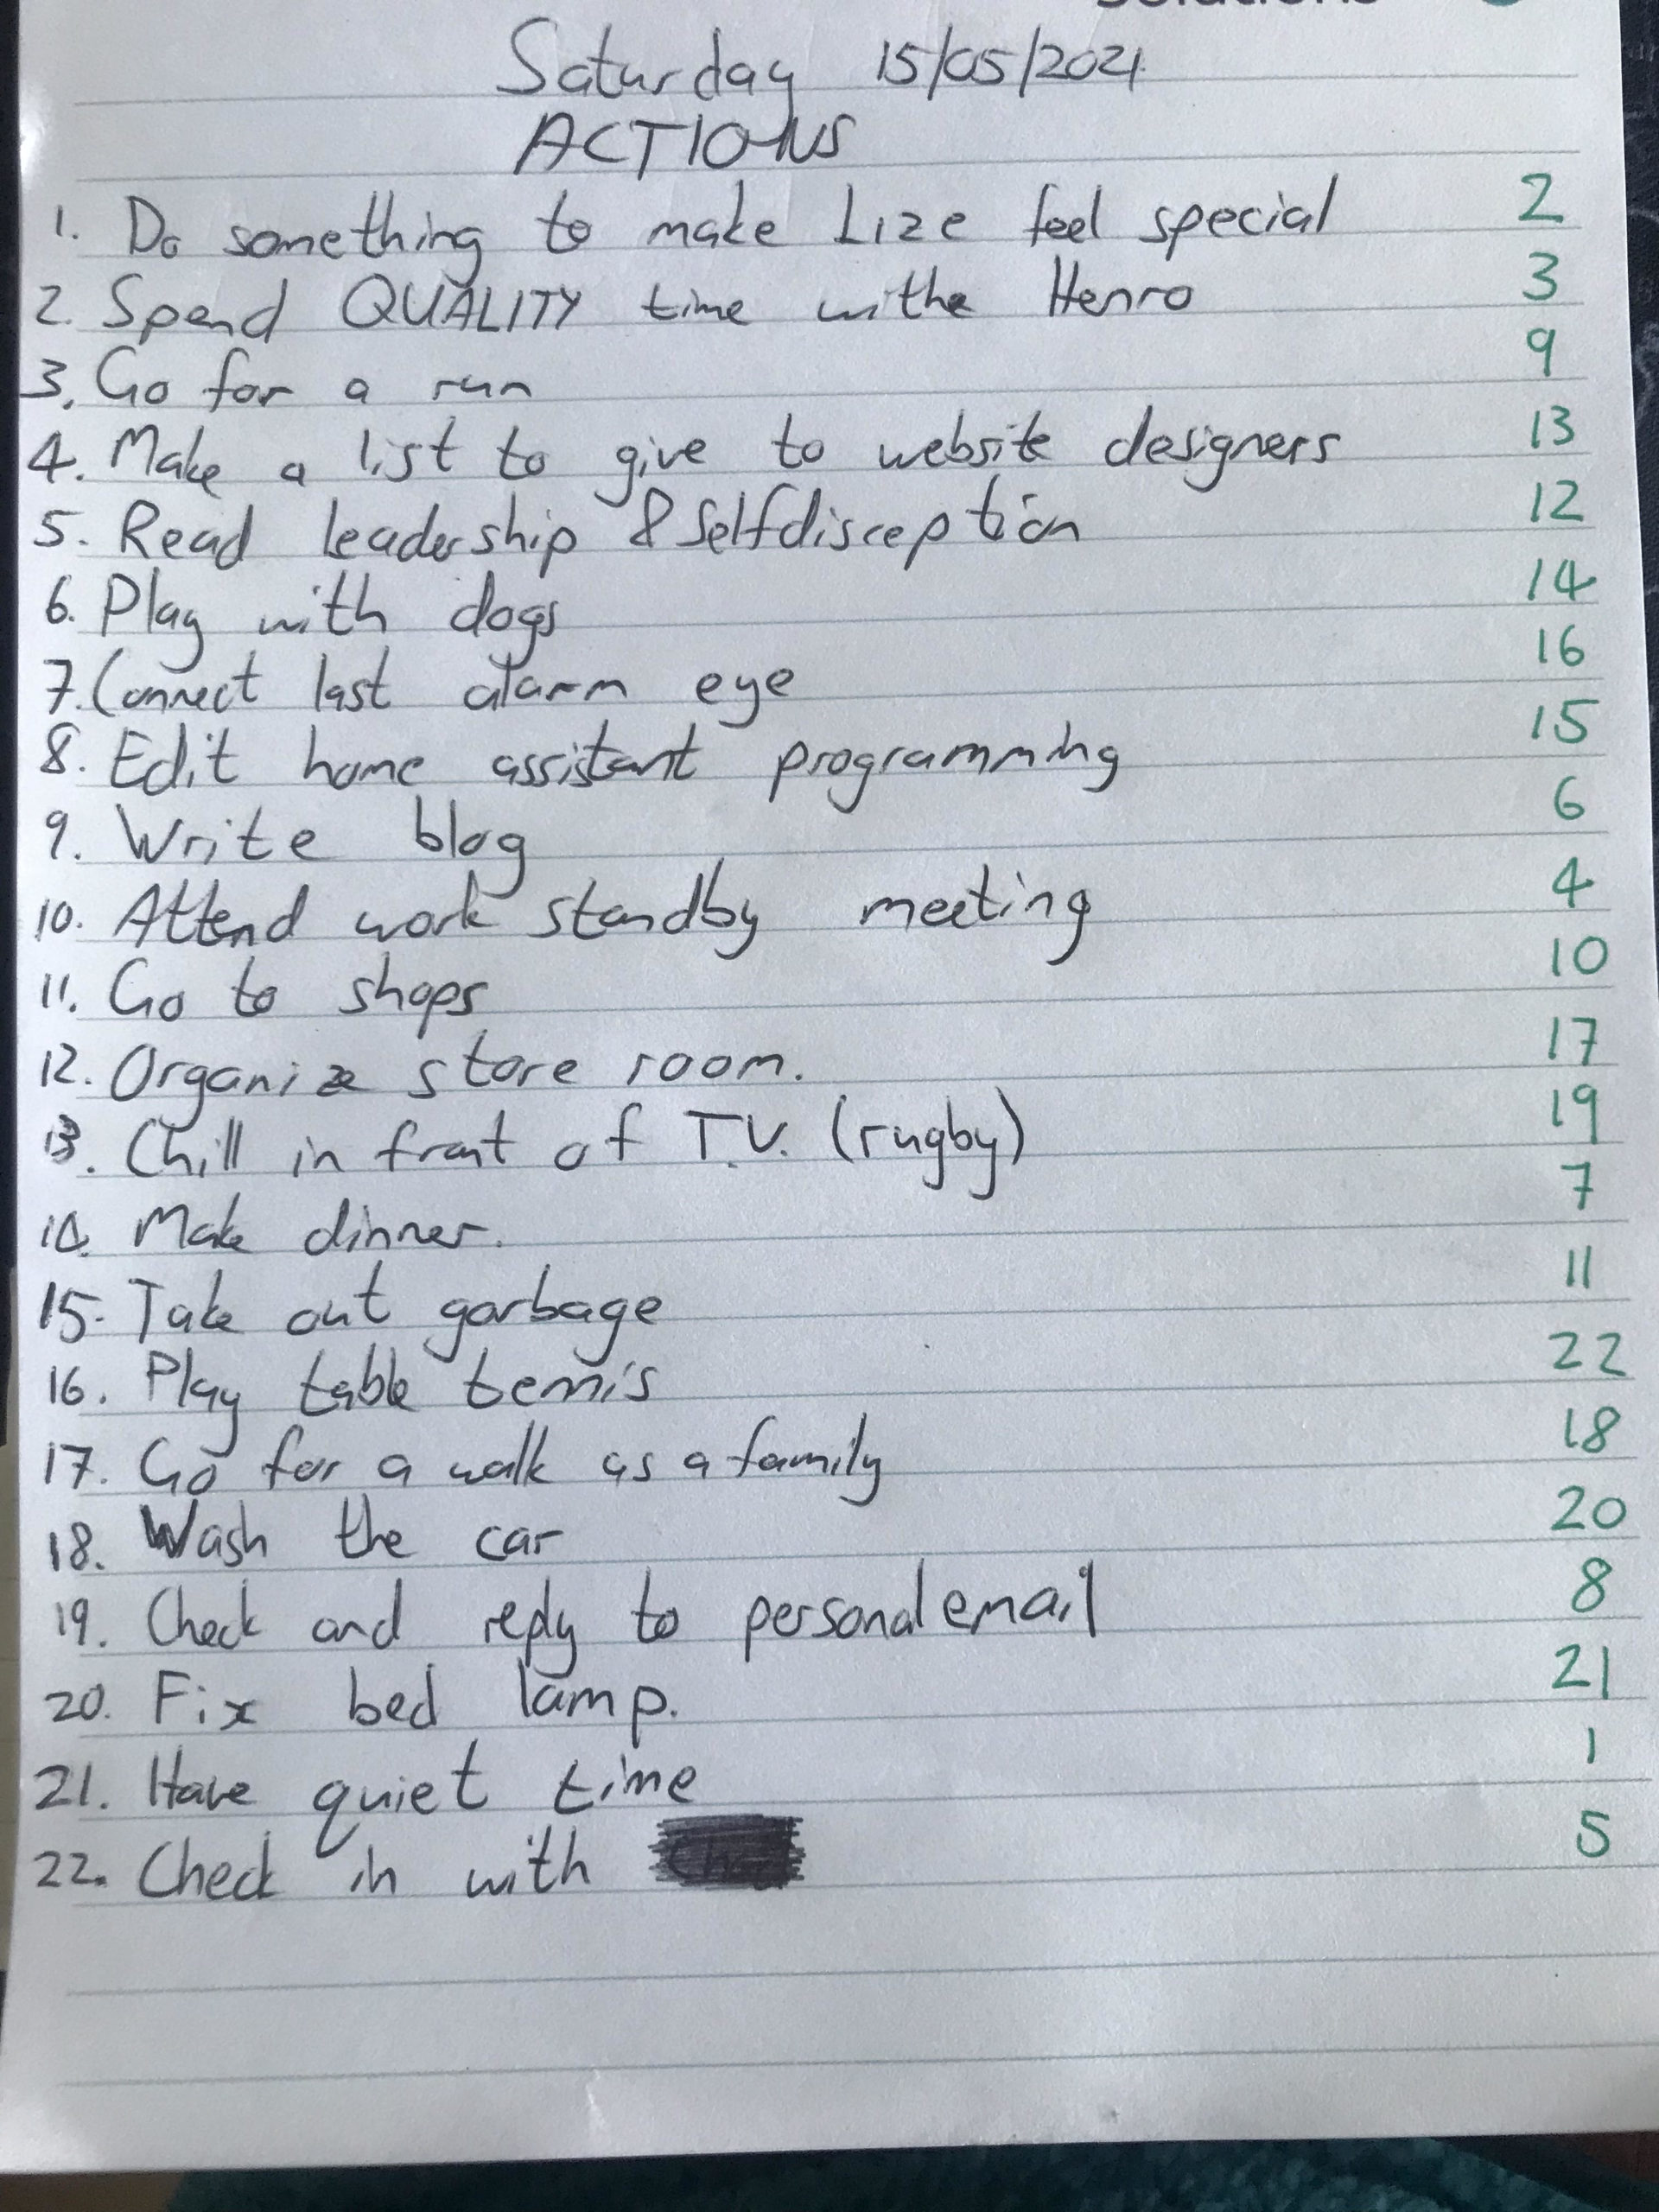 Saturday 15/05/2021
ACTIONS
1. Do something to make Lize feel special 2
2. Spend QUALITY time withe Henro 3
3. Go for a run 9
4. Make a list to give to website designers 13
5. Read leadership & Selfdisception 12
6. Play with dogs 14
7. Connect last alarm eye 16
8. Edit home assistant programming 15
9. Write blog 6
10. Attend work standby meeting 4
11. Go to shops 10
12. Organize store room. 17
13. Chill in front of T.V. (rugby) 19
14. Make dinner. 7
15. Take out garbage 11
16. Play table tennis 22
17. Go for a walk as a family 18
18. Wash the car 20
19. Check and reply to personal email 8
20. Fix bed lamp. 21
21. Have quiet time 1
22. Check in with 5